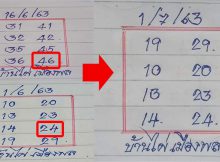 16/6/63
31 41
32 42
35 45
36 46
บ้านไผ่เมืองพล
1/6/63
10 20
13 23
14 24
19 29
บ้านไผ่เมืองพล
1/7/63
19 29.
10 20
13 23
14. 24.
บ้านไผ่เมืองพล